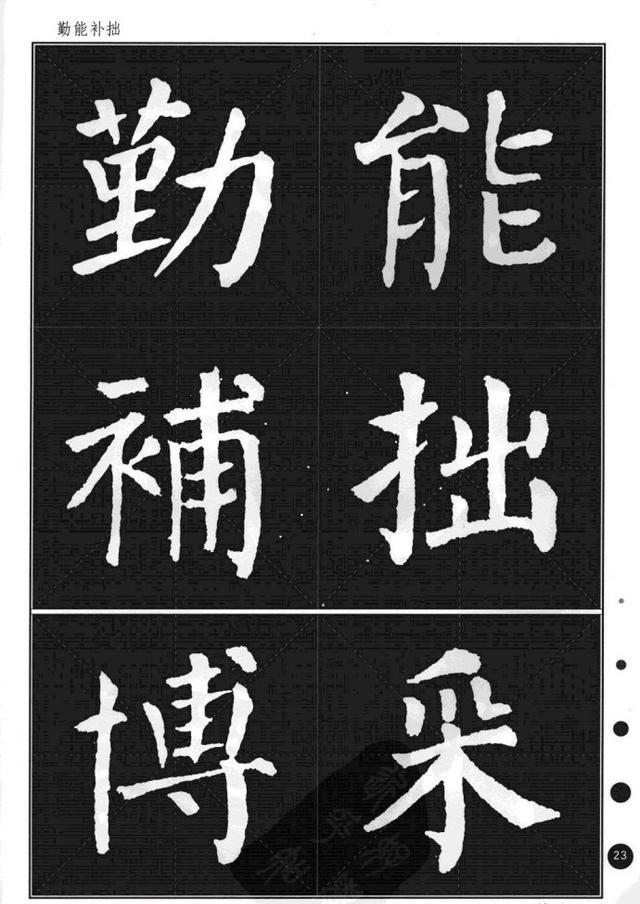 勤能补拙
勤能
補拙
博采
23